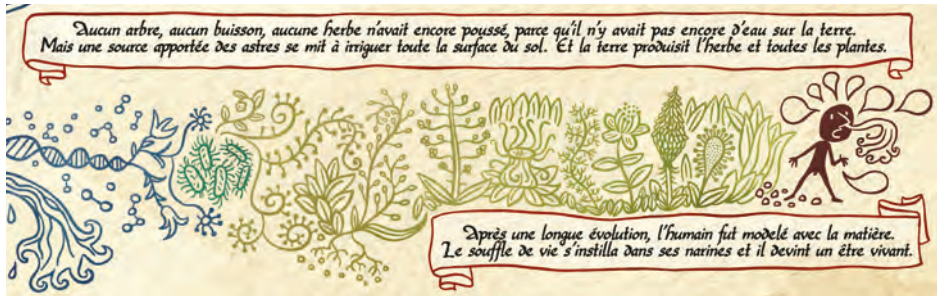 Aucun arbre, aucun buisson, aucune herbe n'avait encore poussé, parce qu'il n'y avait pas encore d'eau sur la terre.
Mais une source apportée des astres se mit à irriguer toute la surface du sol. Et la terre produisit l'herbe et toutes les plantes.
Après une longue évolution, l'humain fut modelé avec la matière.
Le souffle de vie s'instilla dans ses narines et il devint un être vivant.